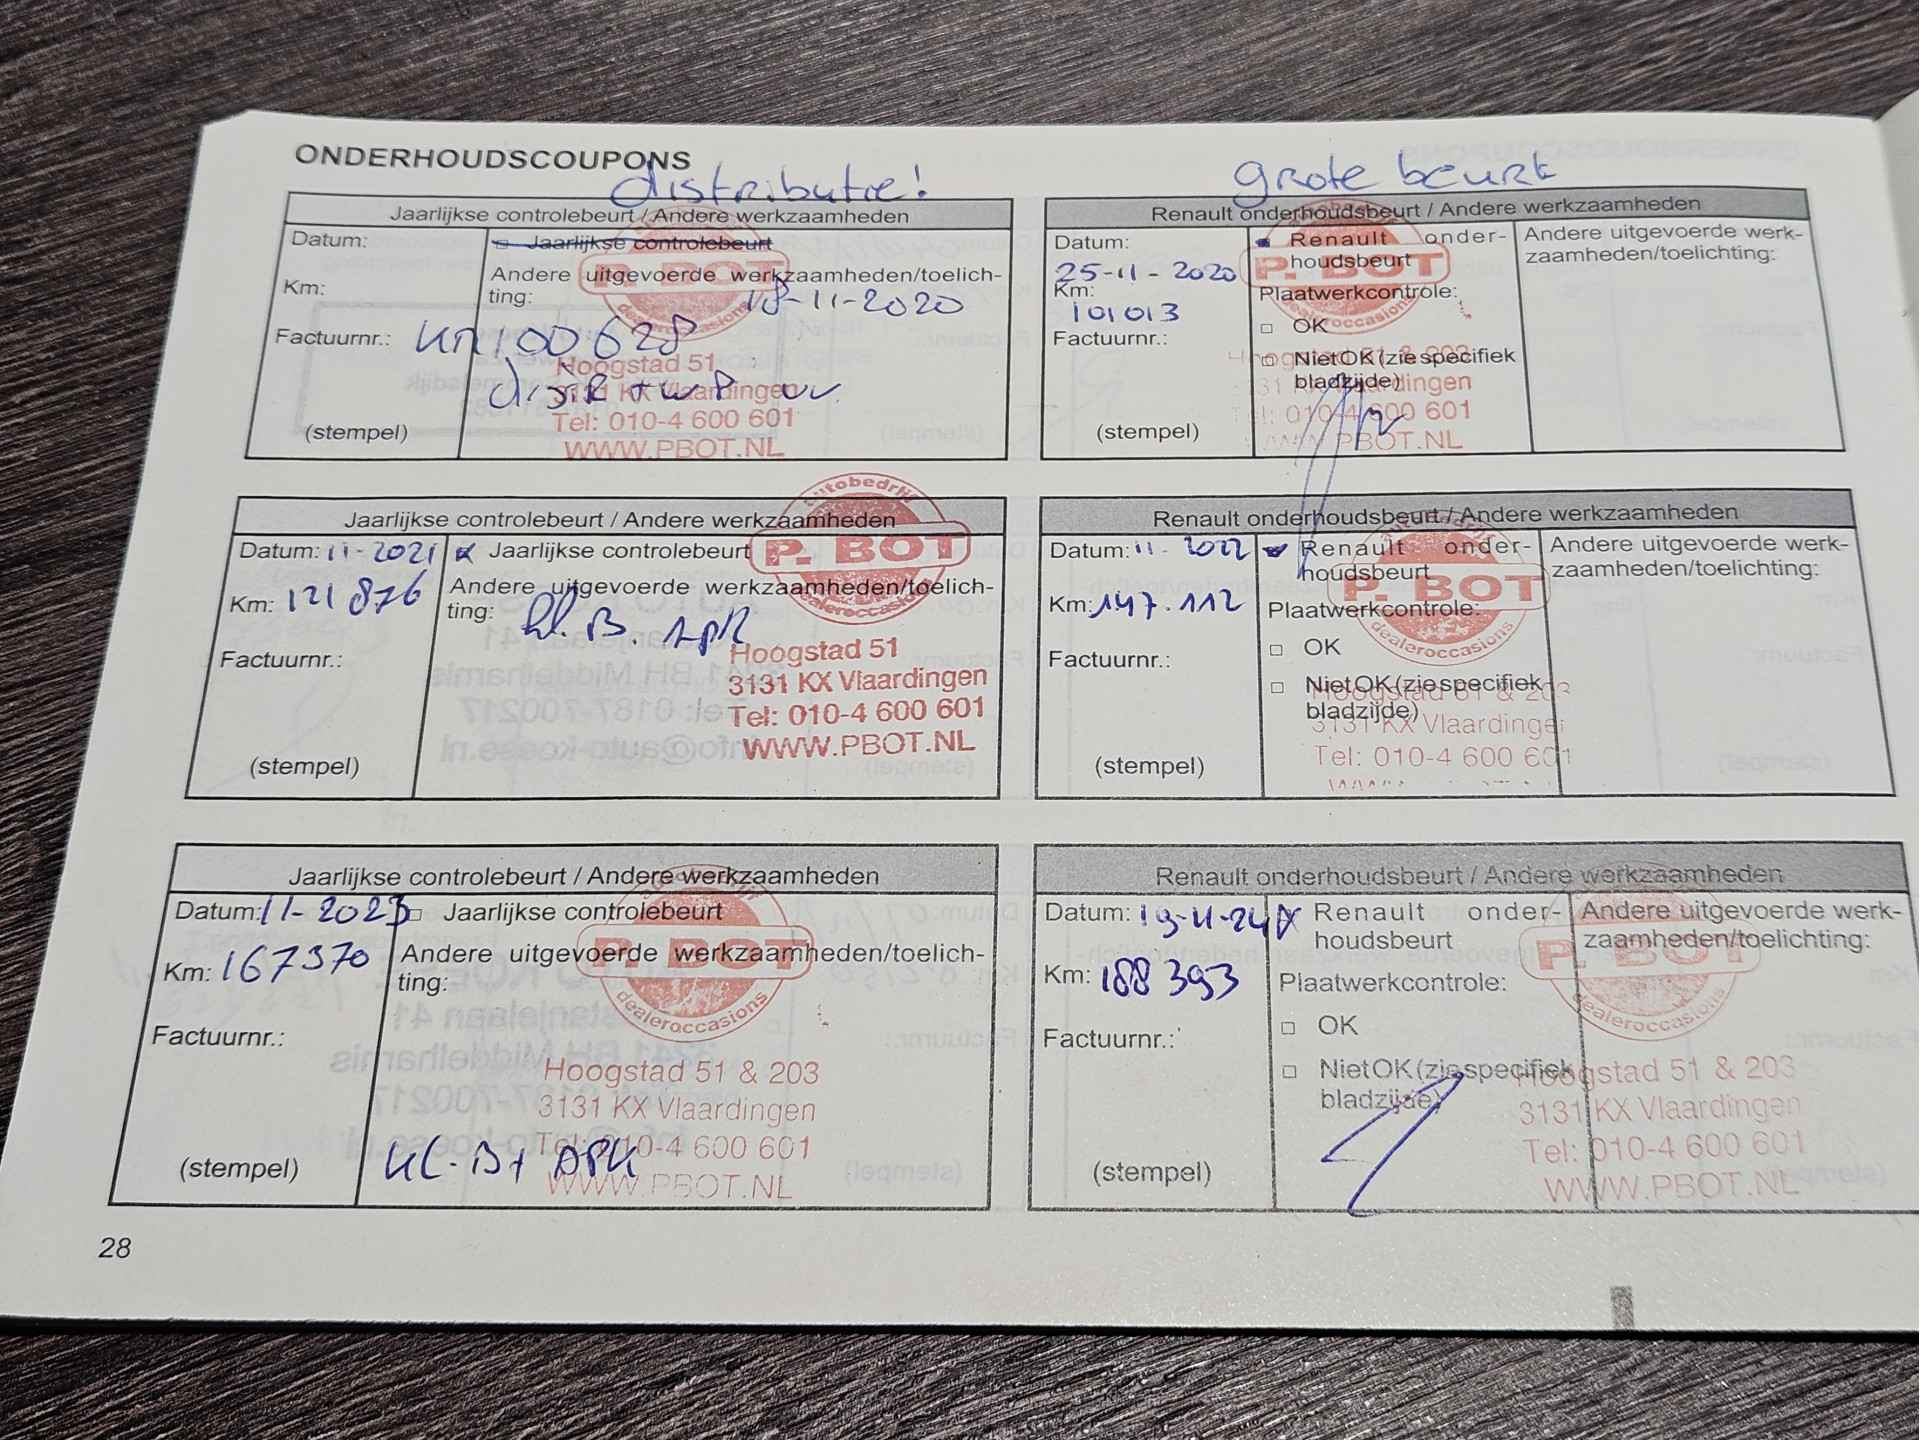 ONDERHOUDSCOUPONS
distributie!
Jaarlijkse controlebeurt / Andere werkzaamheden
Datum:
Jaarlijkse controlebeurt
Andere uitgevoerde werkzaamheden/toelich-
ting: 18-11-2020
Km:
Factuurnr.: km 100628
distR + WP
(stempel)
P. BOT
dealeroccasions
Hoogstad 51
3131 KX Vlaardingen
Tel: 010-4 600 601
WWW.PBOT.NL
grote beurt
Renault onderhoudsbeurt / Andere werkzaamheden
Datum:
25-11-2020
Km:
101013
Factuurnr.:
(stempel)
Renault onder-
houdsbeurt
Plaatwerkcontrole:
OK
Niet OK (zie specifiek
bladzijde)
Andere uitgevoerde werk-
zaamheden/toelichting:
P. BOT
dealeroccasions
Hoogstad 51 & 203
3131 KX Vlaardingen
Tel: 010-4 600 601
WWW.PBOT.NL
Jaarlijkse controlebeurt / Andere werkzaamheden
Datum: 11-2021
Jaarlijkse controlebeurt
Km: 121876
Andere uitgevoerde werkzaamheden/toelich-
ting: kl. B. APK
Factuurnr.:
(stempel)
Autobedrijf
P. BOT
dealeroccasions
Hoogstad 51
3131 KX Vlaardingen
Tel: 010-4 600 601
WWW.PBOT.NL
Renault onderhoudsbeurt / Andere werkzaamheden
Datum: 11-2022
Km: 147.112
Factuurnr.:
(stempel)
Renault onder-
houdsbeurt
Plaatwerkcontrole:
OK
Niet OK (zie specifiek
bladzijde)
Andere uitgevoerde werk-
zaamheden/toelichting:
P. BOT
dealeroccasions
Hoogstad 51 & 203
3131 KX Vlaardingen
Tel: 010-4 600 601
Jaarlijkse controlebeurt / Andere werkzaamheden
Datum: 11-2023
Jaarlijkse controlebeurt
Km: 167370
Andere uitgevoerde werkzaamheden/toelich-
ting:
Factuurnr.:
(stempel)
kl. B + APK
P. BOT
dealeroccasions
Hoogstad 51 & 203
3131 KX Vlaardingen
Tel: 010-4 600 601
WWW.PBOT.NL
Renault onderhoudsbeurt / Andere werkzaamheden
Datum: 19-11-24
Km: 188393
Factuurnr.:
(stempel)
Renault onder-
houdsbeurt
Plaatwerkcontrole:
OK
Niet OK (zie specifiek
bladzijde)
Andere uitgevoerde werk-
zaamheden/toelichting:
P. BOT
dealeroccasions
Hoogstad 51 & 203
3131 KX Vlaardingen
Tel: 010-4 600 601
WWW.PBOT.NL
28